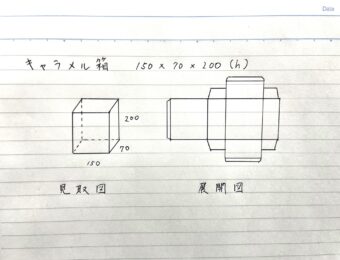 Date
キャラメル箱 150×70×200(h)
200
70
150
見取図 展開図